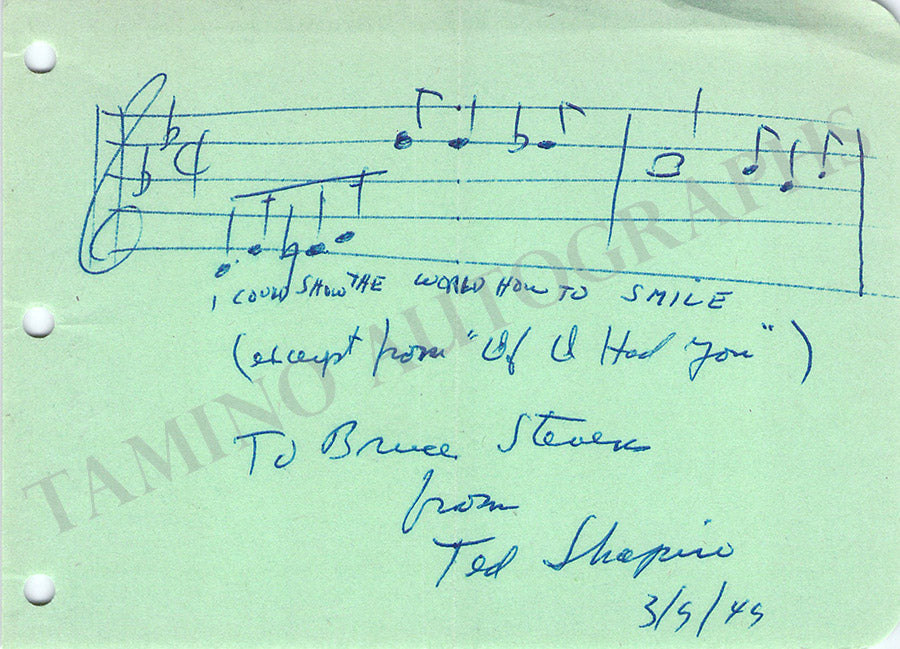 I COULD SHOW THE WORLD HOW TO SMILE
(excerpt from "If I Had You")
To Bruce Stevens
from
Ted Shapiro
3/9/49
TAMINO AUTOGRAPHS